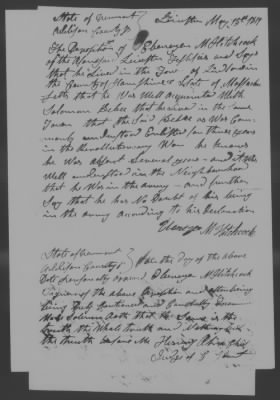 State of Vermont
Addison County Ss
Leicester May 13th 1819
The Deposition of Ebenezer McHitchcock
of the Town of Leicester Testifies and Says
that he lived in the Town of
the County of Hampshire & State of Massachu
setts that he was well acquainted with
Solomon Bebee that lived in the same
Town that the Said Bebee as was Com
monly understood Enlisted for three years
in the Revolutionary War he knows
he was absent several years and it was
well understood in the Neighbourhood
that he was in the army and further
Say that he has No Doubt of his being
in the army according to his Declaration
Ebenezer McHitchcock
State of Vermont
Addison County Ss
On the day of the above
Date personally appeared Ebenezer McHitchcock
Signer of the above Deposition and after being
being Duly Cautioned and Carefully Sworn
made Solemn Oath that the Same is the
truth the whole truth and Nothing but
the truth before me
Judge of S Court